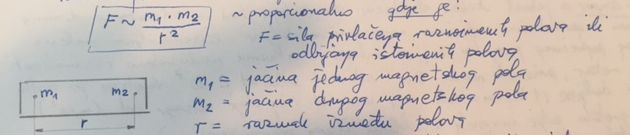 F ~ m₁ · m₂ / r²
~ proporcionalno gdje je:
F = sila privlačenja raznoimenih polova ili
odbijanja istoimenih polova
m₁ = jačina jednog magnetskog pola
m₂ = jačina drugog magnetskog pola
r = razmak između polova
m₁ m₂
r